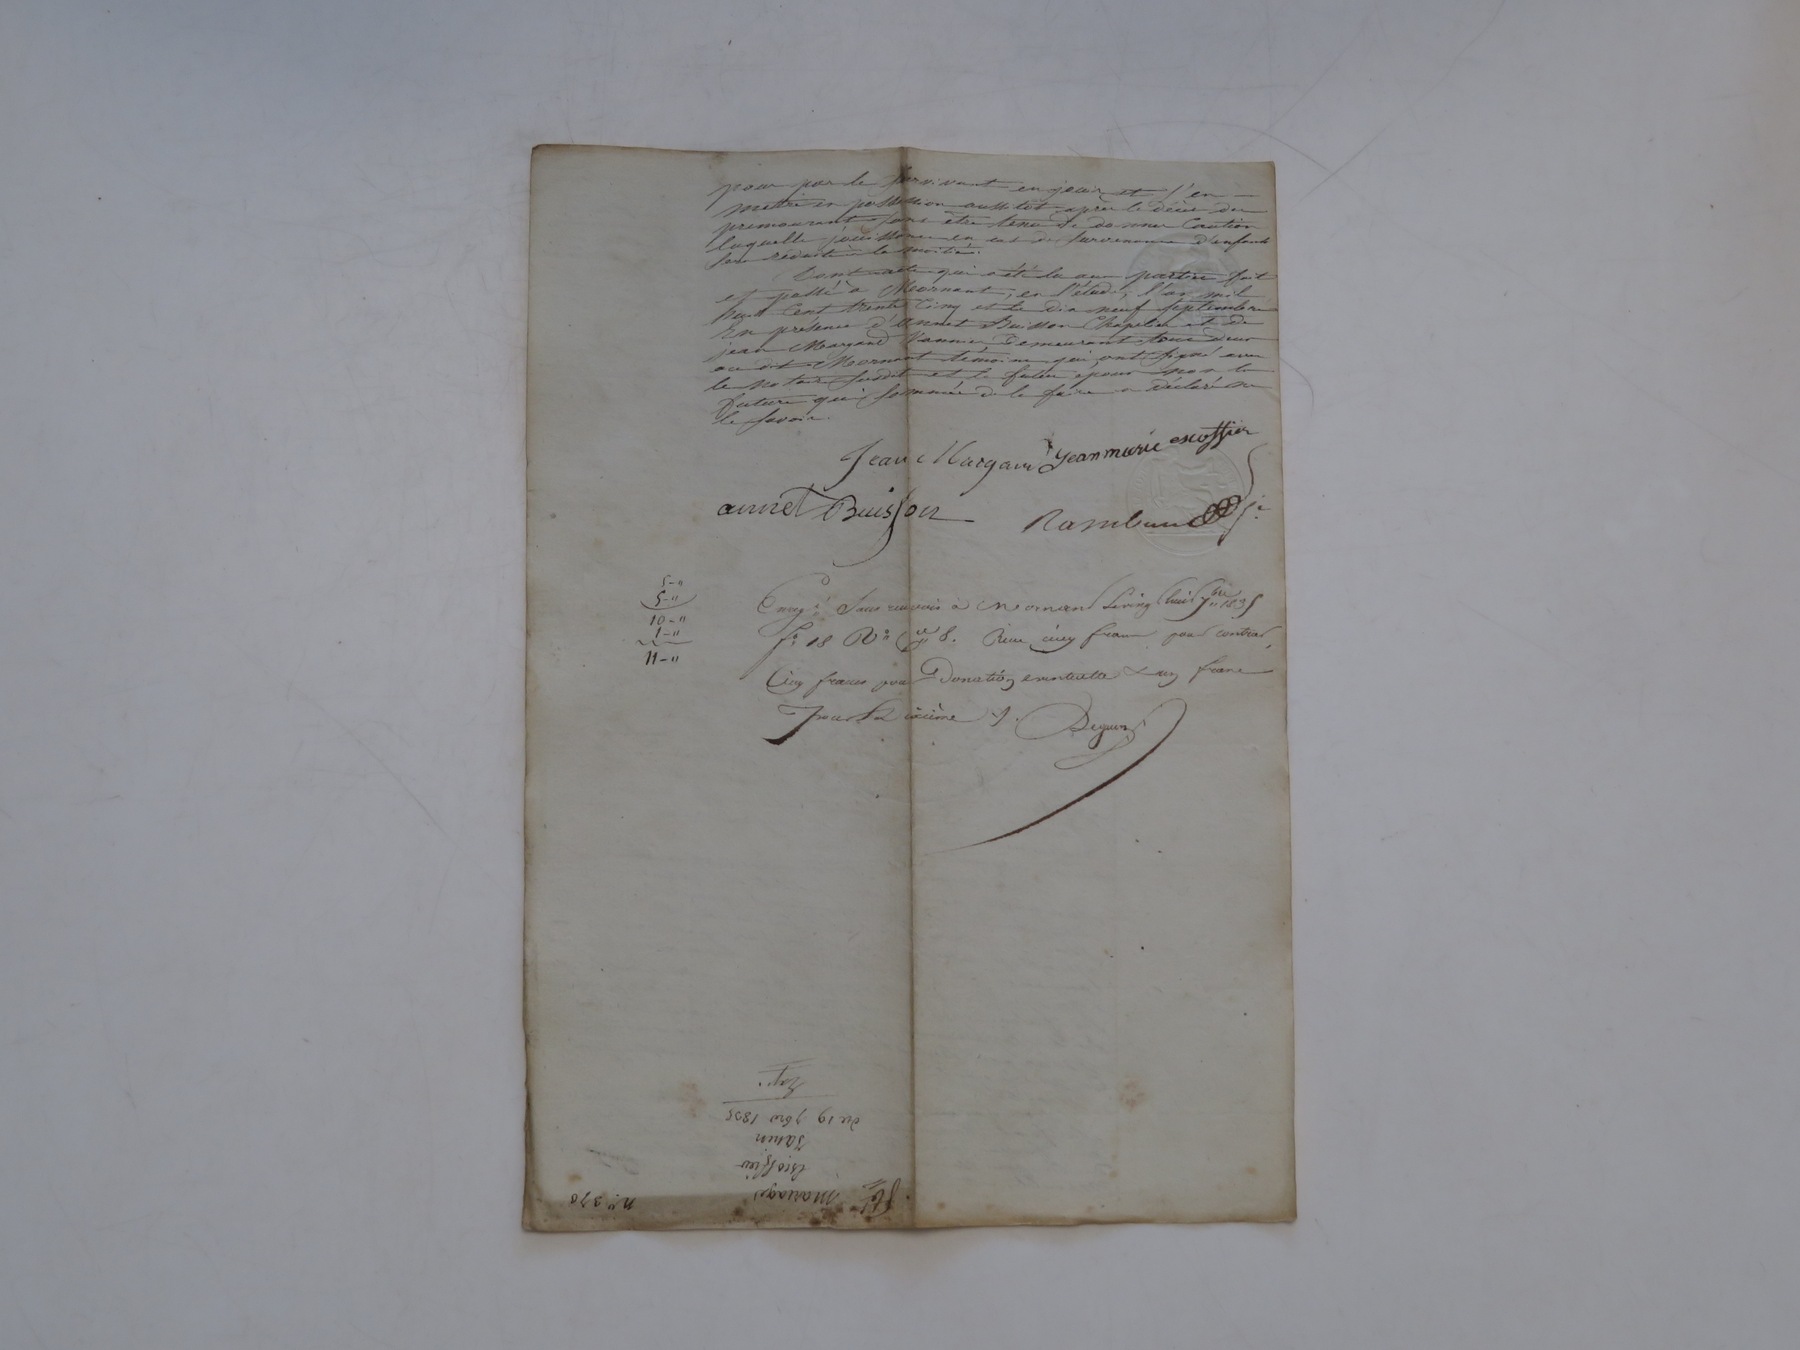 pour par le survivant en jouir et s'en
mettre en possession aussitôt après le décès du
premourant sans être tenu de donner Caution
laquelle jouissance en cas de survenance d'enfants
sera réduite à la moitié.
Dont acte qui a été lu aux parties fait
et passé à Mornant, en l'étude, l'an mil
huit Cent trente Cinq et le dix neuf Septembre
En présence d'annet Buisson Chapelier et de
jean Margand Demeurant tous deux
au dit Mornant témoins qui ont signé avec
le notaire susdit et le futur époux non la
future qui sommée de le faire a déclaré ne
le savoir.
Jean Margand Jeanmarie escoffier
annet Buisson Rambaud
5-"
5-"
10-"
1-"
11-"
Enreg.é Sans renvois à Mornant le vingt huit 7bre 1835
f.o 18 R.o C.e 8. Reçu cinq francs pour contrat,
Cinq francs pour Donation éventuelle & un franc
pour le dixième
n.o 370
mariage
Escoffier
Janin
du 19 7bre 1835
Exp.